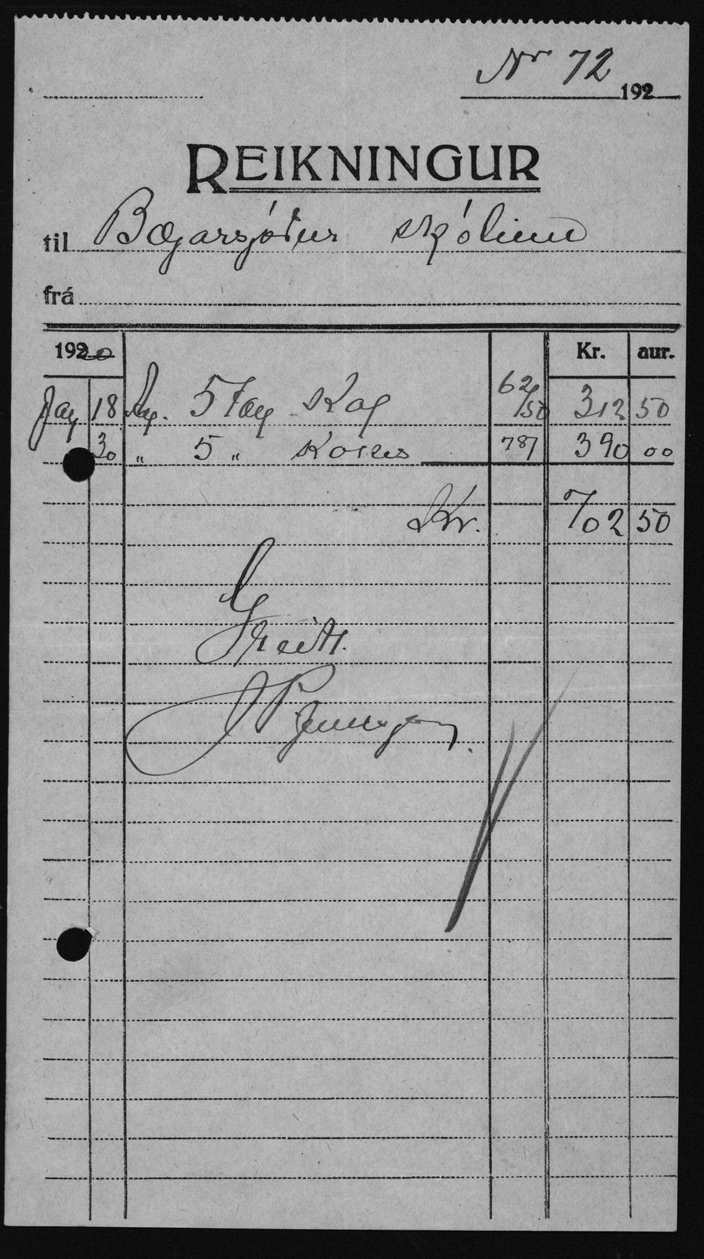 Nr 72
192
REIKNINGUR
til Bæjarsjóður skólinn
frá
1920 Kr. aur.
Jan 18 5 Ton Kol 62/50 312 50
30 " 5 " 787 390 00
Kr. 702 50
Greitt.